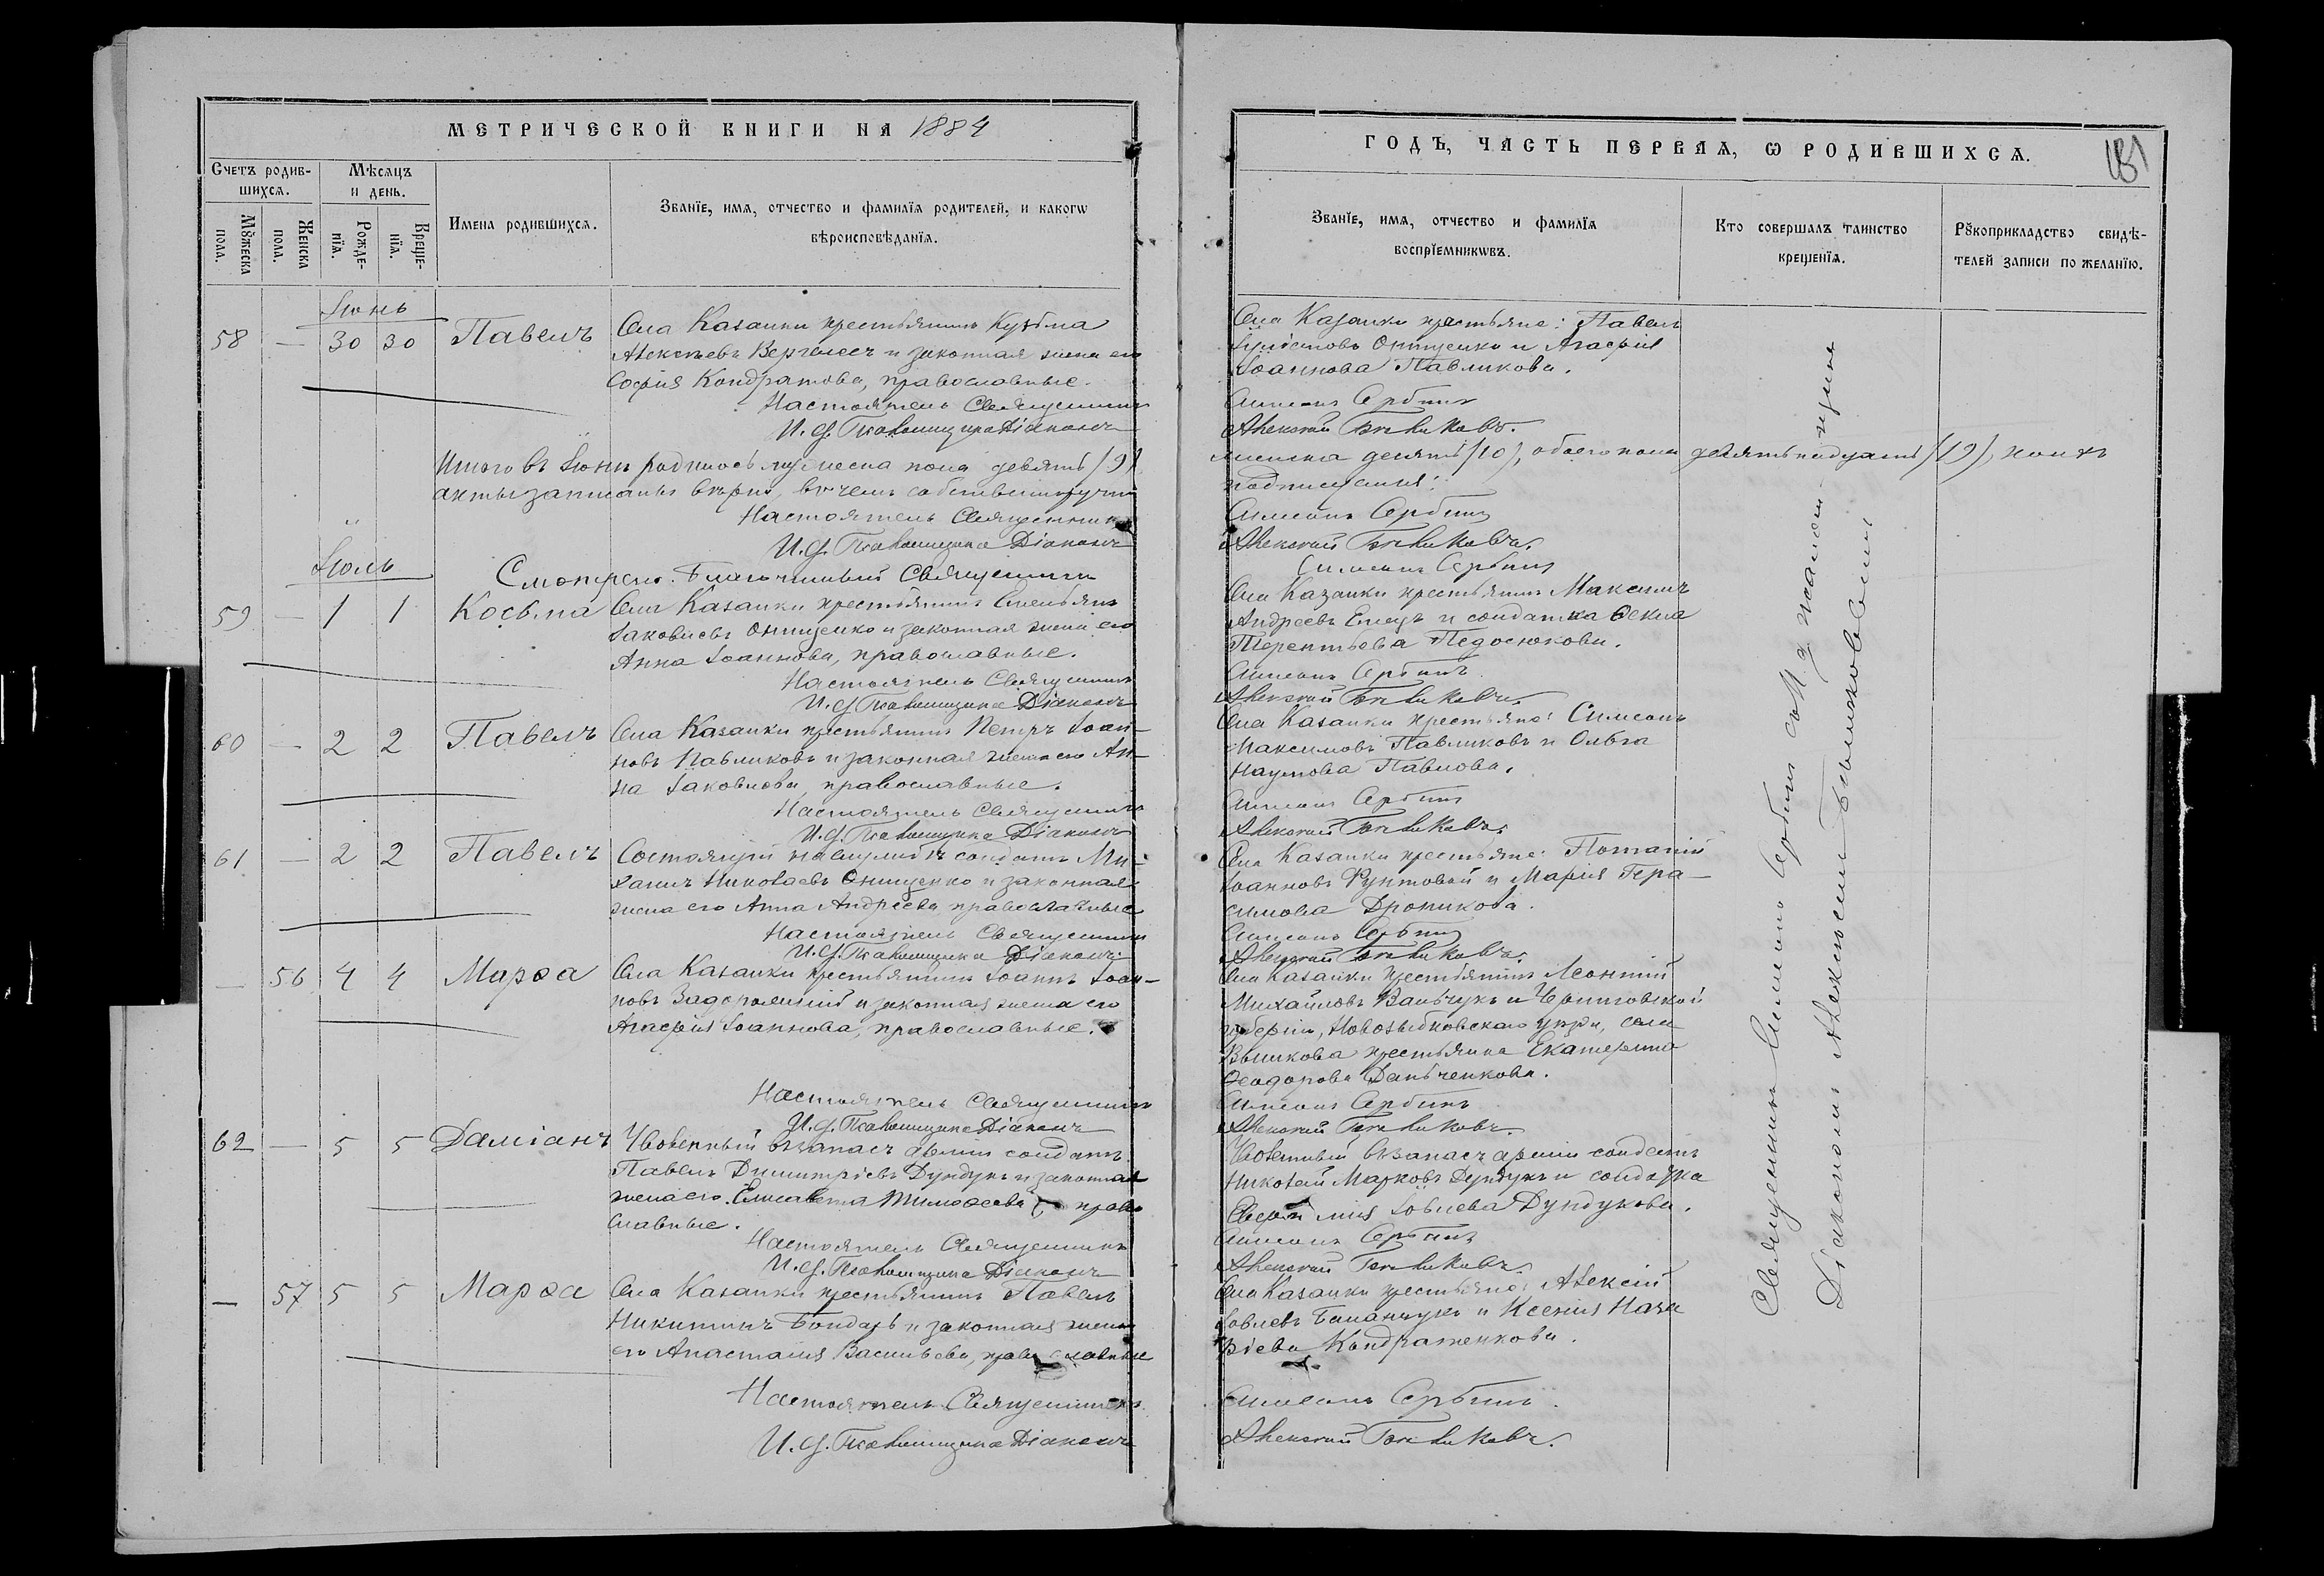 МЕТРИЧЕСКОЙ КНИГИ НА 1884
Счетъ родив-
шихсѧ.
Мѣсѧцъ
и день.
Имена родившихсѧ.
Званїе, имѧ, отчество и фамилїѧ родителей, и какогѡ
вѣроисповѣданїѧ.
Мꙋжеска
пола.
Женска
пола.
Рожде-
нїѧ.
Креще-
нїѧ.
Іюнь
58 — 30 30 Павелъ Села Казанки крестьянинъ Кузьма
Алексѣевъ Вергелесъ и законная жена его
Софія Кондратова, православные.
Настоятель Священникъ
И. д. Псаломщика Діаконъ
Итого въ Іюнѣ родилось мужеска пола девять (9)
акты записаны вѣрно, въ чемъ собственноручно
Настоятель Священникъ
И. д. Псаломщика Діаконъ
Іюль
Смотрѣлъ. Благочинный Священникъ
59 — 1 1 Косьма Села Казанки крестьянинъ Емельянъ
Іаковлевъ Онищенко и законная жена его
Анна Іоаннова, православные.
Настоятель Священникъ
И. д. Псаломщика Діаконъ
60 — 2 2 Павелъ Села Казанки крестьянинъ Петръ Іоан-
новъ Павликовъ и законная жена его Ан-
на Іаковлева, православные.
Настоятель Священникъ
И. д. Псаломщика Діаконъ
61 — 2 2 Павелъ Состоящій на службѣ солдатъ Ми-
хаилъ Николаевъ Онищенко и законная
жена его Анна Андреева, православные
Настоятель Священникъ
И. д. Псаломщика Діаконъ
— 56 4 4 Марѳа Села Казанки крестьянинъ Іоаннъ Іоан-
новъ Задорожній и законная жена его
Агафія Іоаннова, православные.
Настоятель Священникъ
И. д. Псаломщика Діаконъ
62 — 5 5 Даміанъ Уволенный въ запасъ арміи солдатъ
Павелъ Димитріевъ Дундукъ и законная
жена его Елисавета Тимоѳеева, право
славные.
Настоятель Священникъ
И. д. Псаломщика Діаконъ
— 57 5 5 Марѳа Села Казанки крестьянинъ Павелъ
Никитинъ Бондарь и законная жена
его Анастасія Васильева, православные
Настоятель Священникъ
И. д. Псаломщика Діаконъ
ГОДЪ, ЧАСТЬ ПЕРВАѦ, Ѡ РОДИВШИХСѦ.
181
Званїе, имѧ, отчество и фамилїѧ
воспрїемникѡвъ.
Кто совершалъ таинство
крещенїѧ.
Рꙋкоприкладство свидѣ-
телей записи по желанїю.
Села Казанки крестьяне: Павелъ
Онищенко и Агафія
Іоаннова Павликова.
Симеонъ Сербинъ
Алексѣй Бѣликовъ.
женска десять (10), обоего пола девятнадцать (19), коихъ
подписуемся:
Симеонъ Сербинъ
Алексѣй Бѣликовъ.
Симеонъ Сербинъ
Села Казанки крестьянинъ Максимъ
Андреевъ Елецъ и солдатка Ѳекла
Терентьева Педосюкова.
Симеонъ Сербинъ
Алексѣй Бѣликовъ.
Села Казанки крестьяне: Симеонъ
Максимовъ Павликовъ и Ольга
Наумова Павлова.
Симеонъ Сербинъ
Алексѣй Бѣликовъ.
Села Казанки крестьяне: Потапій
Іоанновъ Фунтовой и Марія Гера-
симова Дроникова.
Симеонъ Сербинъ
Алексѣй Бѣликовъ.
Села Казанки крестьянинъ Леонтій
Михайловъ Вальчукъ и Черниговской
губерніи, Новозыбковскаго уѣзда, села
крестьянка Екатерина
Ѳеодорова Данченкова.
Симеонъ Сербинъ
Алексѣй Бѣликовъ.
Уволенный въ запасъ арміи солдатъ
Николай Марковъ Дундукъ и солдатка
Евфимія Іовлева Дундукова.
Симеонъ Сербинъ
Алексѣй Бѣликовъ.
Села Казанки крестьяне: Алексій
Іовлевъ Баланчукъ и Ксенія Наза
рьева Кондратенкова.
Симеонъ Сербинъ.
Алексѣй Бѣликовъ.
Священникъ Симеонъ Сербинъ съ И. д. псалом-щика
Діакономъ Алексѣемъ Бѣликовымъ